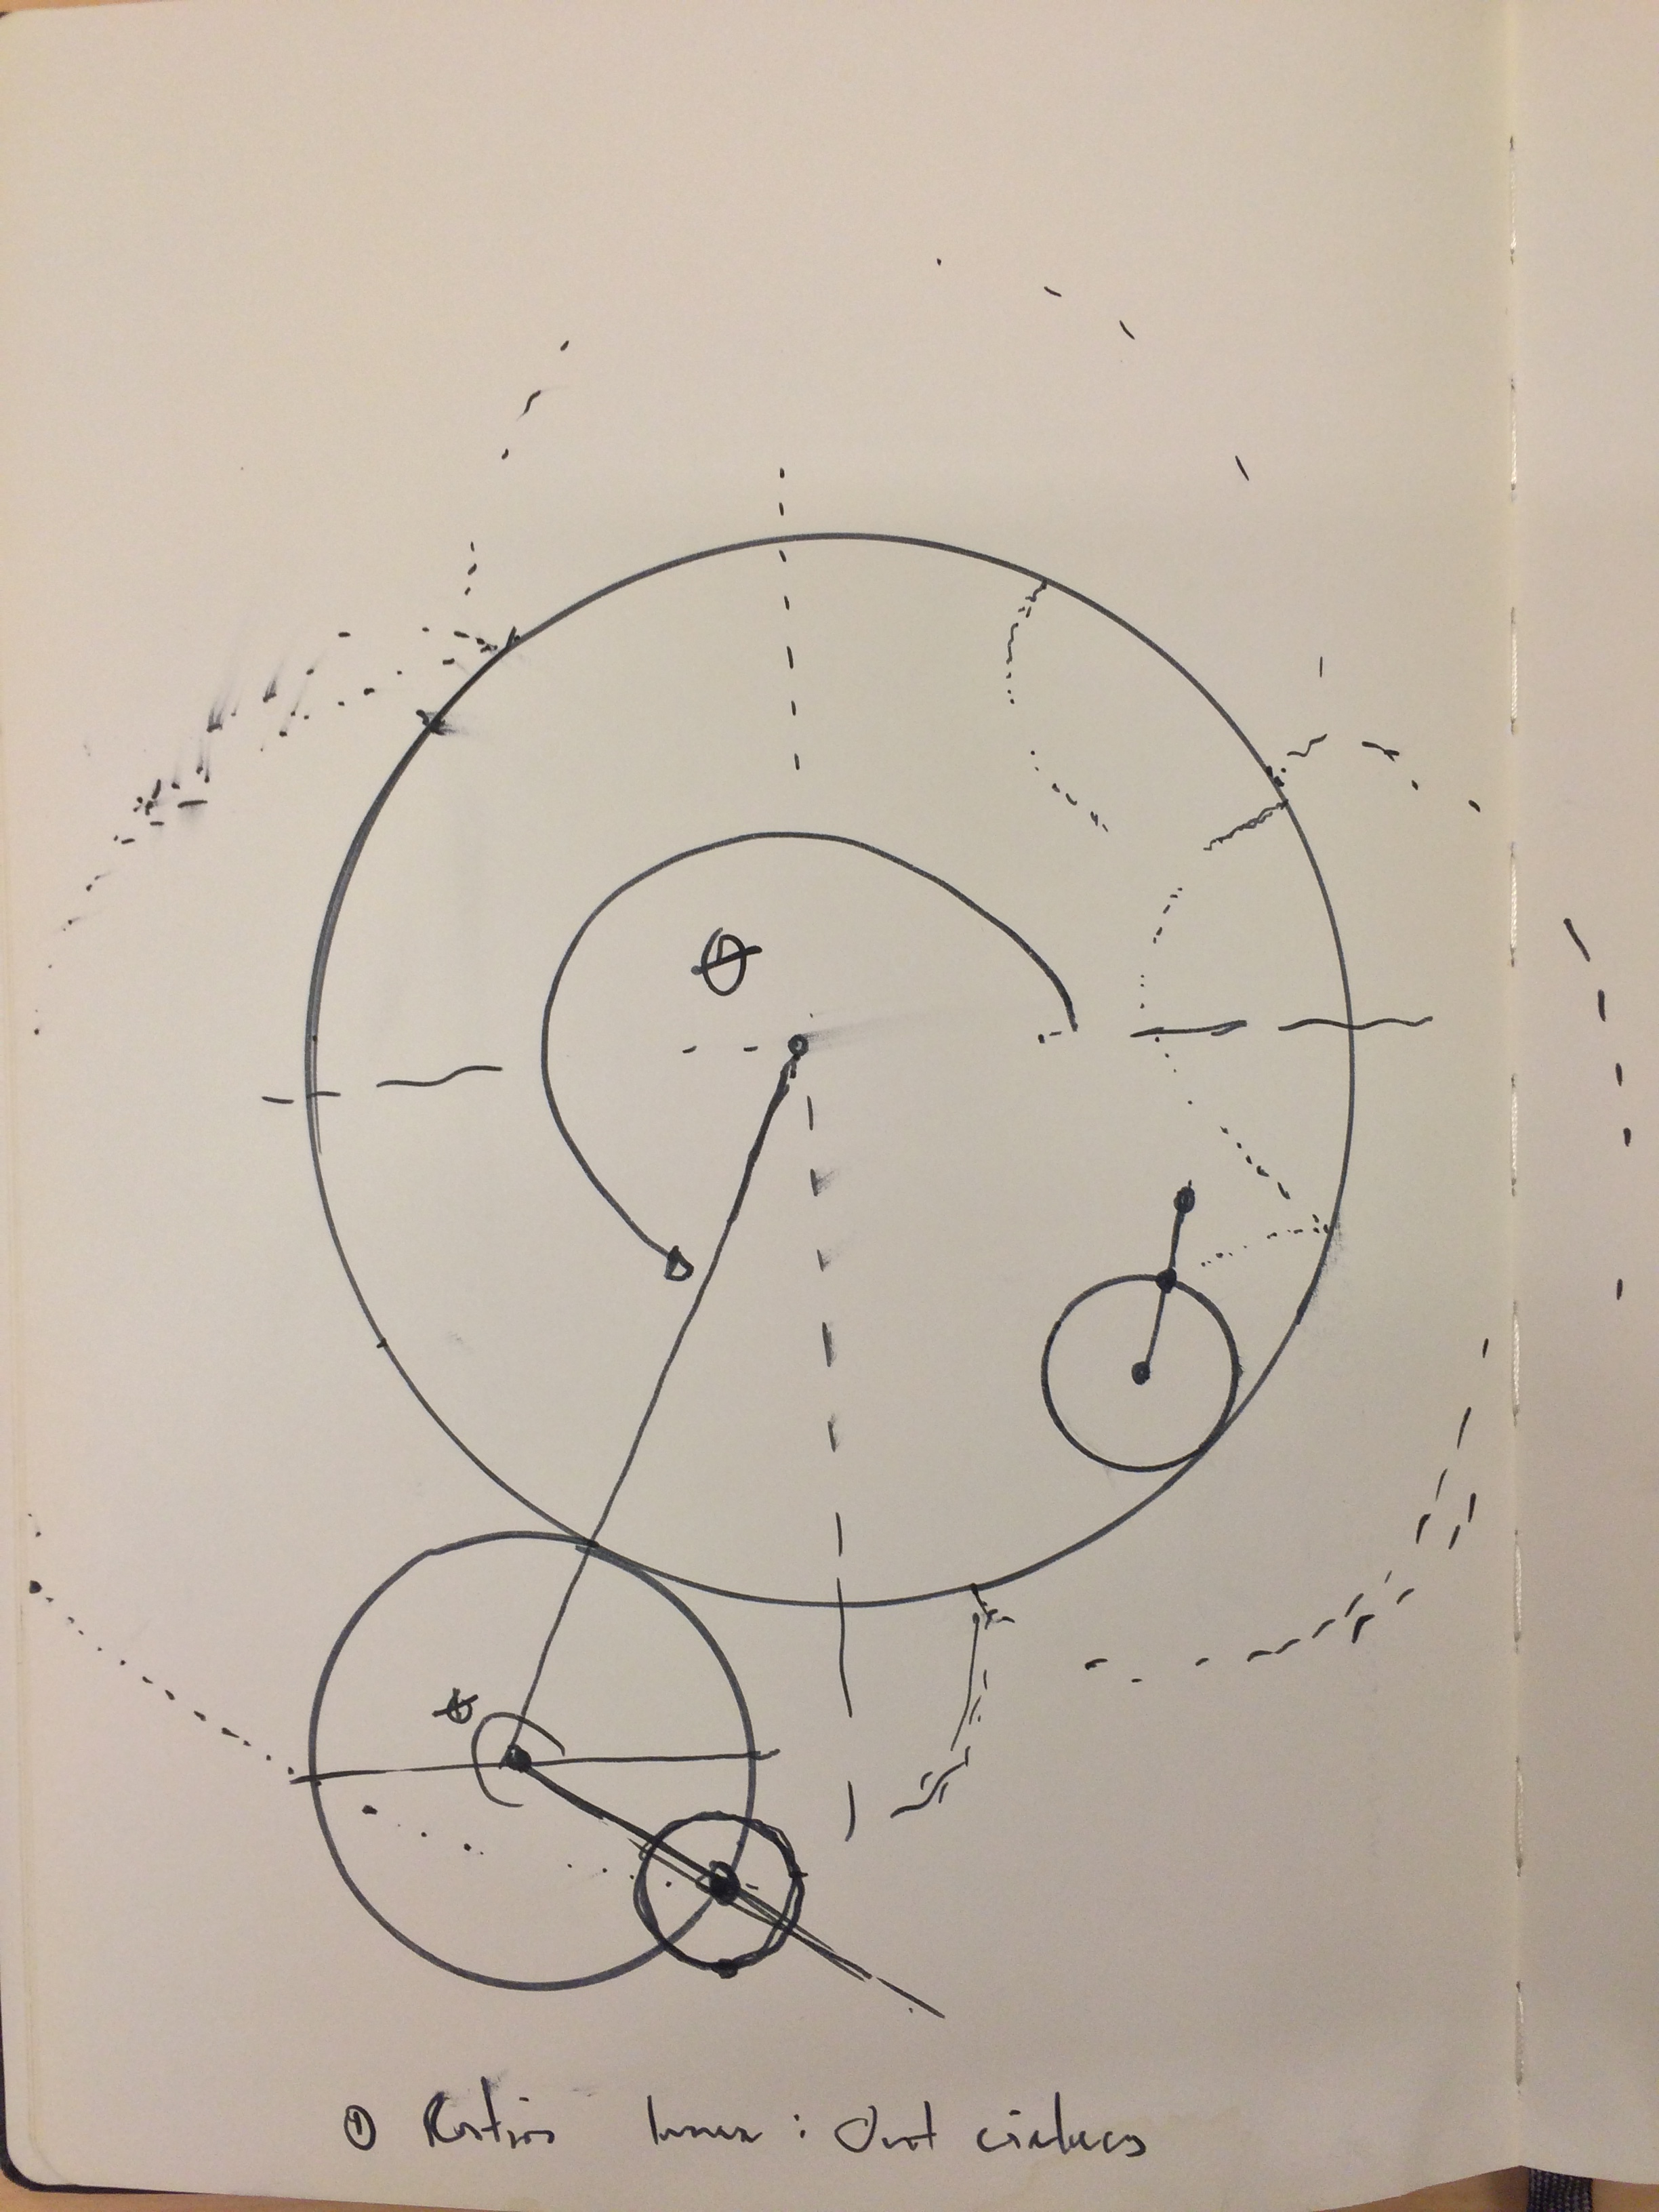 θ
θ
① Ratios Inner : Out circles